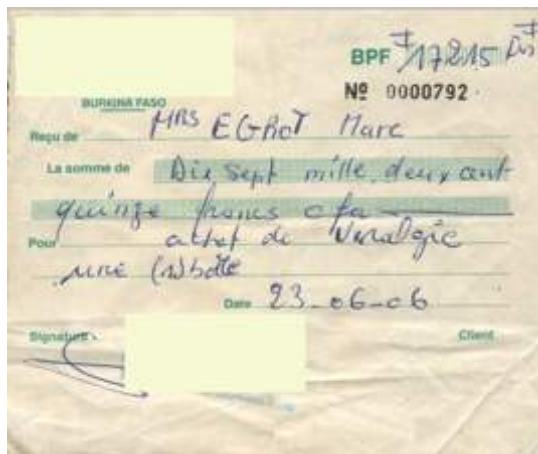 BPF 17215
Nº 0000792
BURKINA FASO
Reçu de MRS EGROT Marc
La somme de Dix sept mille deux cent
quinze francs cfa
Pour achat de Viralgic
une (1) boîte
Date 23-06-06
Signature Client